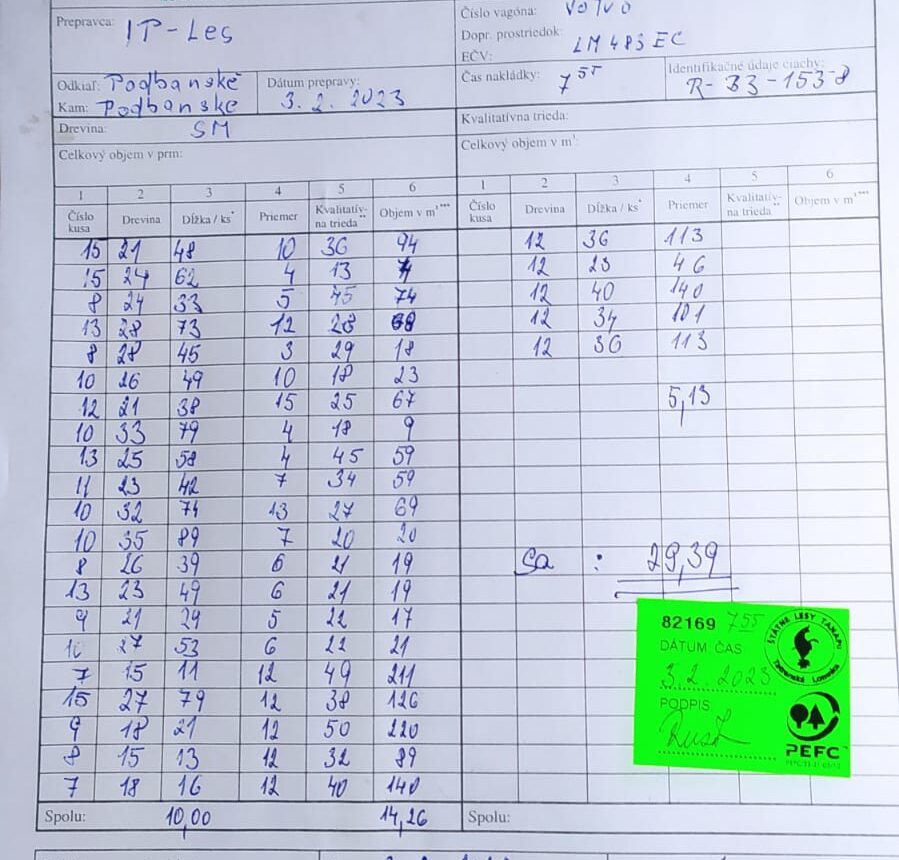 Prepravca: IT-Les
Číslo vagóna: VOLVO
Dopr. prostriedok:
EČV: LM 483 EC
Odkiaľ: Podbanské
Kam: Podbanske
Dátum prepravy:
3.2.2023
Čas nakládky: 7 55
Identifikačné údaje ciachy:
R-B3-153-8
Drevina: SM
Kvalitatívna trieda:
Celkový objem v prm:
Celkový objem v m³:
1 2 3 4 5 6 1 2 3 4 5 6
Číslo kusa Drevina Dĺžka / ks* Priemer Kvalitatív-na trieda** Objem v m³*** Číslo kusa Drevina Dĺžka / ks* Priemer Kvalitatív-na trieda** Objem v m³***
15 21 48 10 36 94 12 36 113
15 24 62 4 13 12 23 46
8 24 33 5 45 74 12 40 140
13 28 73 12 28 12 34 101
8 28 45 3 29 18 12 36 113
10 26 49 10 18 23
12 21 38 15 25 67 5,13
10 33 79 4 18 9
13 25 58 4 45 59
11 23 42 7 34 59
10 32 74 13 27 69
10 35 89 7 20 20
8 26 39 6 21 19 Sa : 29,39
13 23 49 6 21 19
9 21 29 5 22 17
27 53 6 22 21
7 15 11 12 49 211
15 27 79 12 38 126
9 18 21 12 50 220
8 15 13 12 32 89
7 18 16 12 40 140
Spolu: 10,00 14,26 Spolu:
82169 7 55
DÁTUM ČAS
3.2.2023
PODPIS
ŠTÁTNE LESY TANAPU
Tatranská Lomnica
PEFC